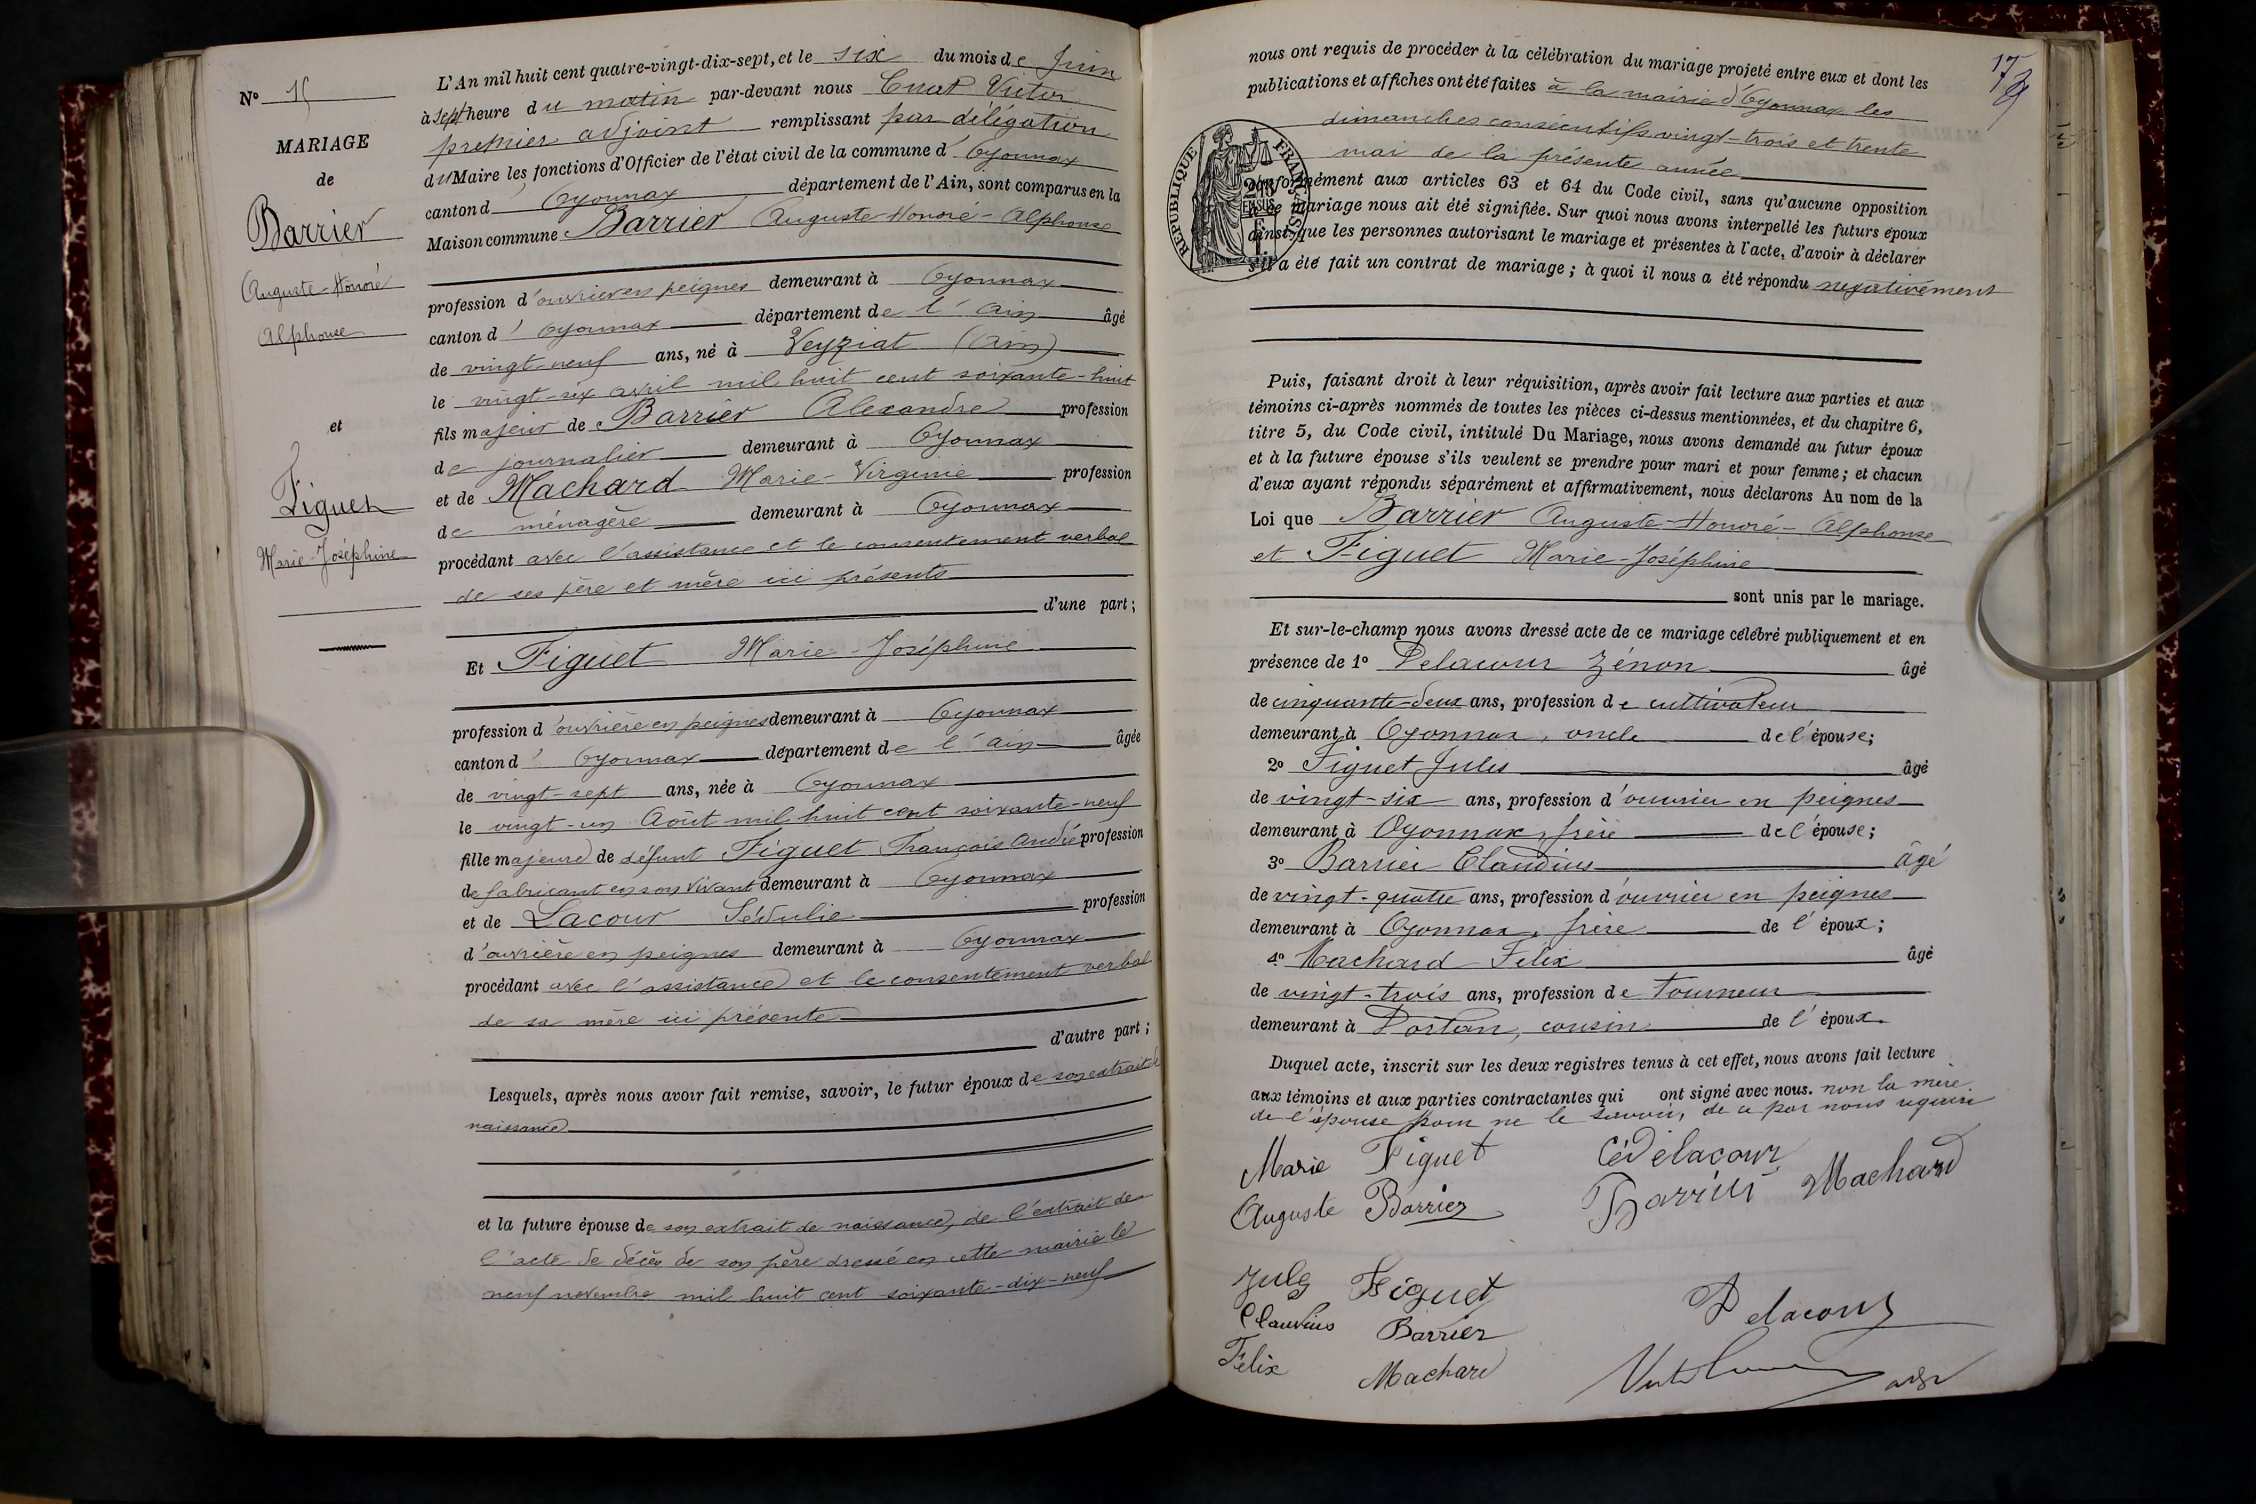 N° 15
MARIAGE
de
Barrier
Auguste-Honoré
Alphonse
et
Figuet
Marie-Joséphine
L'An mil huit cent quatre-vingt-dix-sept, et le six du mois de Juin
à sept heure du matin par-devant nous Cuaz Victor
premier adjoint remplissant par délégation
du Maire les fonctions d'Officier de l'état civil de la commune d'Oyonnax
canton d'Oyonnax département de l'Ain, sont comparus en la
Maison commune Barrier Auguste-Honoré-Alphonse
profession d'ouvrier en peignes demeurant à Oyonnax
canton d'Oyonnax département de l'Ain âgé
de vingt-neuf ans, né à Veyziat (Ain)
le vingt-six avril mil huit cent soixante-huit
fils majeur de Barrier Alexandre profession
de journalier demeurant à Oyonnax
et de Machard Marie-Virginie profession
de ménagère demeurant à Oyonnax
procédant avec l'assistance et le consentement verbal
de ses père et mère ici présents
d'une part;
Et Figuet Marie-Joséphine
profession d'ouvrière en peignes demeurant à Oyonnax
canton d'Oyonnax département de l'Ain âgée
de vingt-sept ans, née à Oyonnax
le vingt-un Août mil huit cent soixante-neuf
fille majeure de défunt Figuet François André profession
de fabricant en son vivant demeurant à Oyonnax
et de Lacour Sédulie profession
d'ouvrière en peignes demeurant à Oyonnax
procédant avec l'assistance et le consentement verbal
de sa mère ici présente
d'autre part;
Lesquels, après nous avoir fait remise, savoir, le futur époux de son extrait de
naissance
et la future épouse de son extrait de naissance, de l'extrait de
l'acte de décès de son père dressé en cette mairie le
neuf novembre mil huit cent soixante-dix-neuf
17
nous ont requis de procéder à la célébration du mariage projeté entre eux et dont les
publications et affiches ont été faites à la mairie d'Oyonnax les
dimanches consécutifs vingt-trois et trente
mai de la présente année
RÉPUBLIQUE FRANÇAISE
conformément aux articles 63 et 64 du Code civil, sans qu'aucune opposition
à ce mariage nous ait été signifiée. Sur quoi nous avons interpellé les futurs époux
ainsi que les personnes autorisant le mariage et présentes à l'acte, d'avoir à déclarer
s'il a été fait un contrat de mariage; à quoi il nous a été répondu négativement
Puis, faisant droit à leur réquisition, après avoir fait lecture aux parties et aux
témoins ci-après nommés de toutes les pièces ci-dessus mentionnées, et du chapitre 6,
titre 5, du Code civil, intitulé Du Mariage, nous avons demandé au futur époux
et à la future épouse s'ils veulent se prendre pour mari et pour femme; et chacun
d'eux ayant répondu séparément et affirmativement, nous déclarons Au nom de la
Loi que Barrier Auguste-Honoré-Alphonse
et Figuet Marie-Joséphine
sont unis par le mariage.
Et sur-le-champ nous avons dressé acte de ce mariage célébré publiquement et en
présence de 1° Delacour Zénon âgé
de cinquante-deux ans, profession de cultivateur
demeurant à Oyonnax, oncle de l'épouse;
2° Figuet Jules âgé
de vingt-six ans, profession d'ouvrier en peignes
demeurant à Oyonnax, frère de l'épouse;
3° Barrier Claudius âgé
de vingt-quatre ans, profession d'ouvrier en peignes
demeurant à Oyonnax, frère de l'époux;
4° Machard Félix âgé
de vingt-trois ans, profession de tourneur
demeurant à Dortan, cousin de l'époux.
Duquel acte, inscrit sur les deux registres tenus à cet effet, nous avons fait lecture
aux témoins et aux parties contractantes qui ont signé avec nous. non la mère
de l'épouse pour ne le savoir, de ce par nous requise
Marie Figuet Delacour
Auguste Barrier Barrier Machard
Jules Figuet Delacour
Claudius Barrier
Felix Machard adj